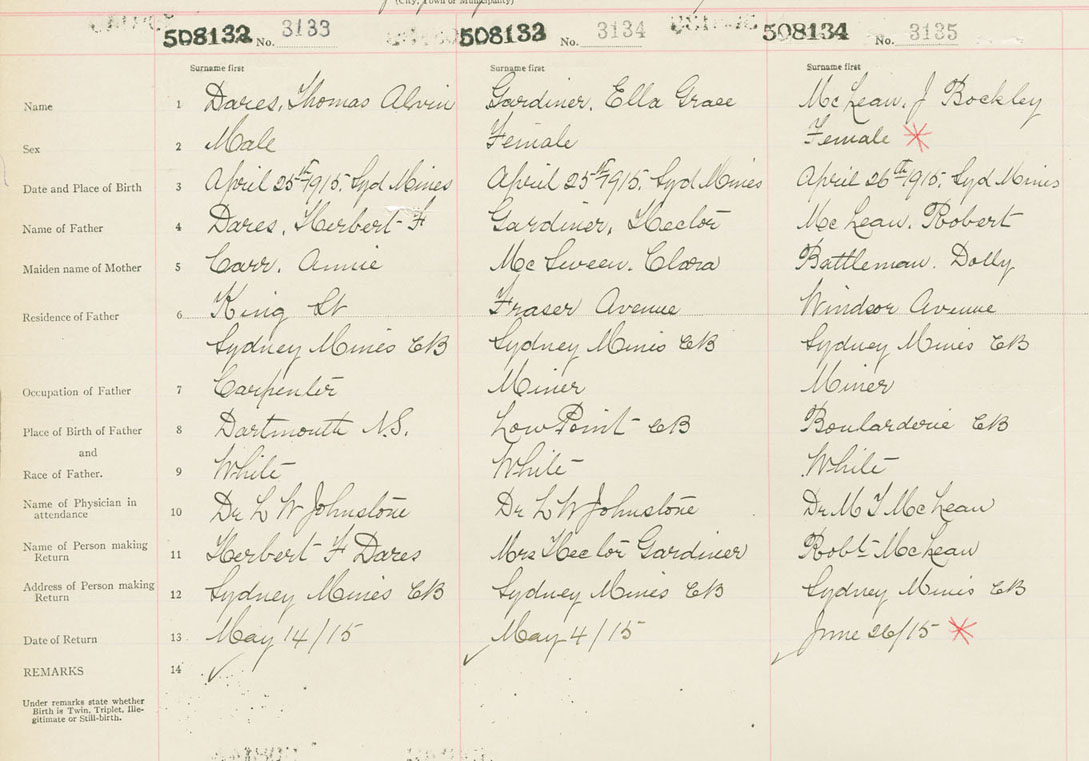 (City, Town or Municipality)
508132 No. 3133 508133 No. 3134 508134 No. 3135
Surname first Surname first Surname first
Name 1 Dares, Thomas Alvin Gardiner, Ella Grace McLean, J Bockley
Sex 2 Male Female Female *
Date and Place of Birth 3 April 25th 1915, Syd Mines April 25th 1915, Syd Mines April 26th 1915, Syd Mines
Name of Father 4 Dares, Herbert F Gardiner, Hector McLean, Robert
Maiden name of Mother 5 Carr, Annie McSween, Clara Battleman. Dolly
Residence of Father 6 King St Fraser Avenue Windsor Avenue
Sydney Mines CB Sydney Mines CB Sydney Mines CB
Occupation of Father 7 Carpenter Miner Miner
Place of Birth of Father 8 Dartmouth N.S. Low Point CB Boularderie CB
and
Race of Father. 9 White White White
Name of Physician in attendance 10 Dr L W Johnstone Dr L W Johnstone Dr M T McLean
Name of Person making Return 11 Herbert F Dares Mrs Hector Gardiner Robt McLean
Address of Person making Return 12 Sydney Mines CB Sydney Mines CB Sydney Mines CB
Date of Return 13 May 14/15 May 4/15 June 26/15 *
REMARKS 14
Under remarks state whether
Birth is Twin, Triplet, Ille-
gitimate or Still-birth.